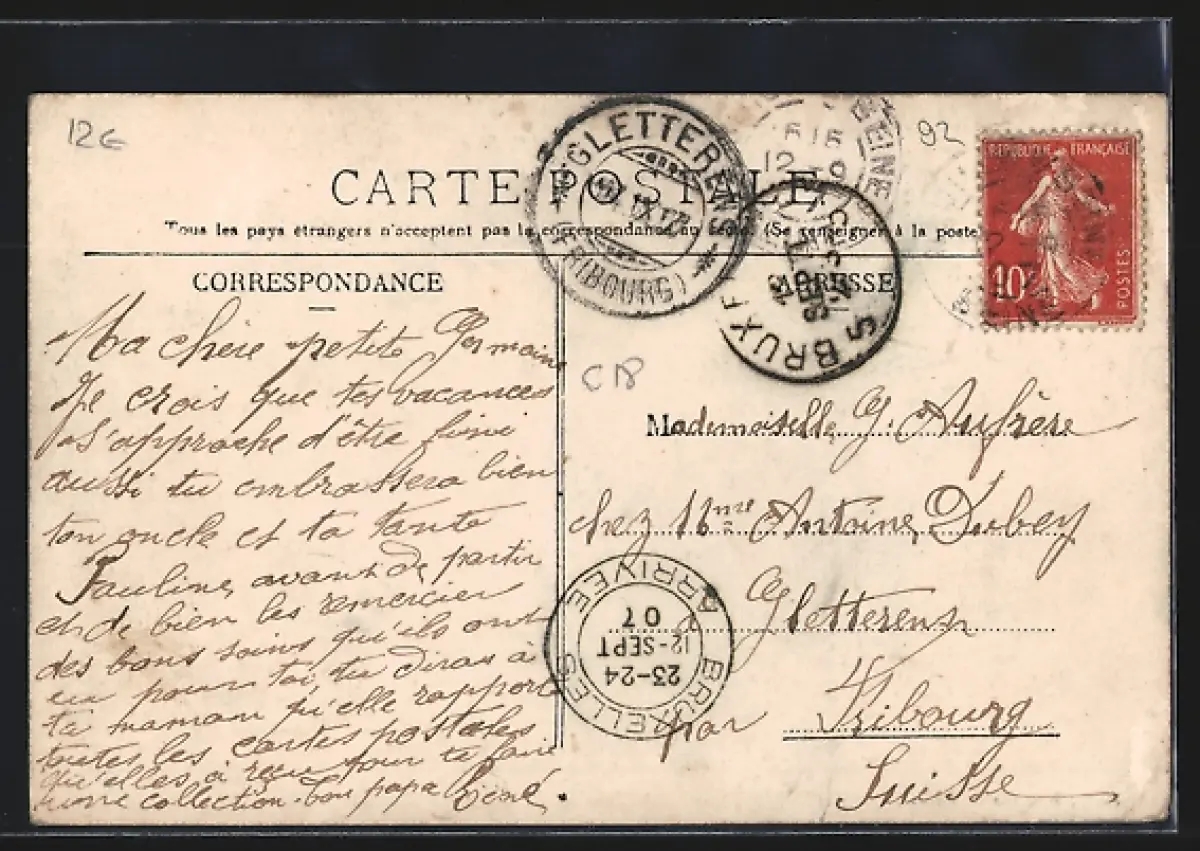 12G
92
RÉPUBLIQUE FRANÇAISE
10
POSTES
CARTE POSTALE
GLETTERENS
IX
(FRIBOURG)
SEINE
12
BRUX
13
SEPT
Tous les pays étrangers n'acceptent pas la correspondance au (Se renseigner à la poste
CORRESPONDANCE
ADRESSE
Ma chère petite Germaine
Je crois que tes vacances
s'approche d'être fini
aussi tu embrassera bien
ton oncle et ta tante
Pauline, avant de partir
et de bien les remercier
des bons soins qu'ils ont
eu pour toi tu diras à
ta maman qu'elle rapporte
toutes les cartes postales
qu'elles a reçu pour te faire
une collection. ton papa René.
C18
Mademoiselle G. Aufrère
chez Mme Antoine Dubey
à Gletterens
par Fribourg
Suisse
BRUXELLES
ARRIVEE
23-24
12-SEPT
07